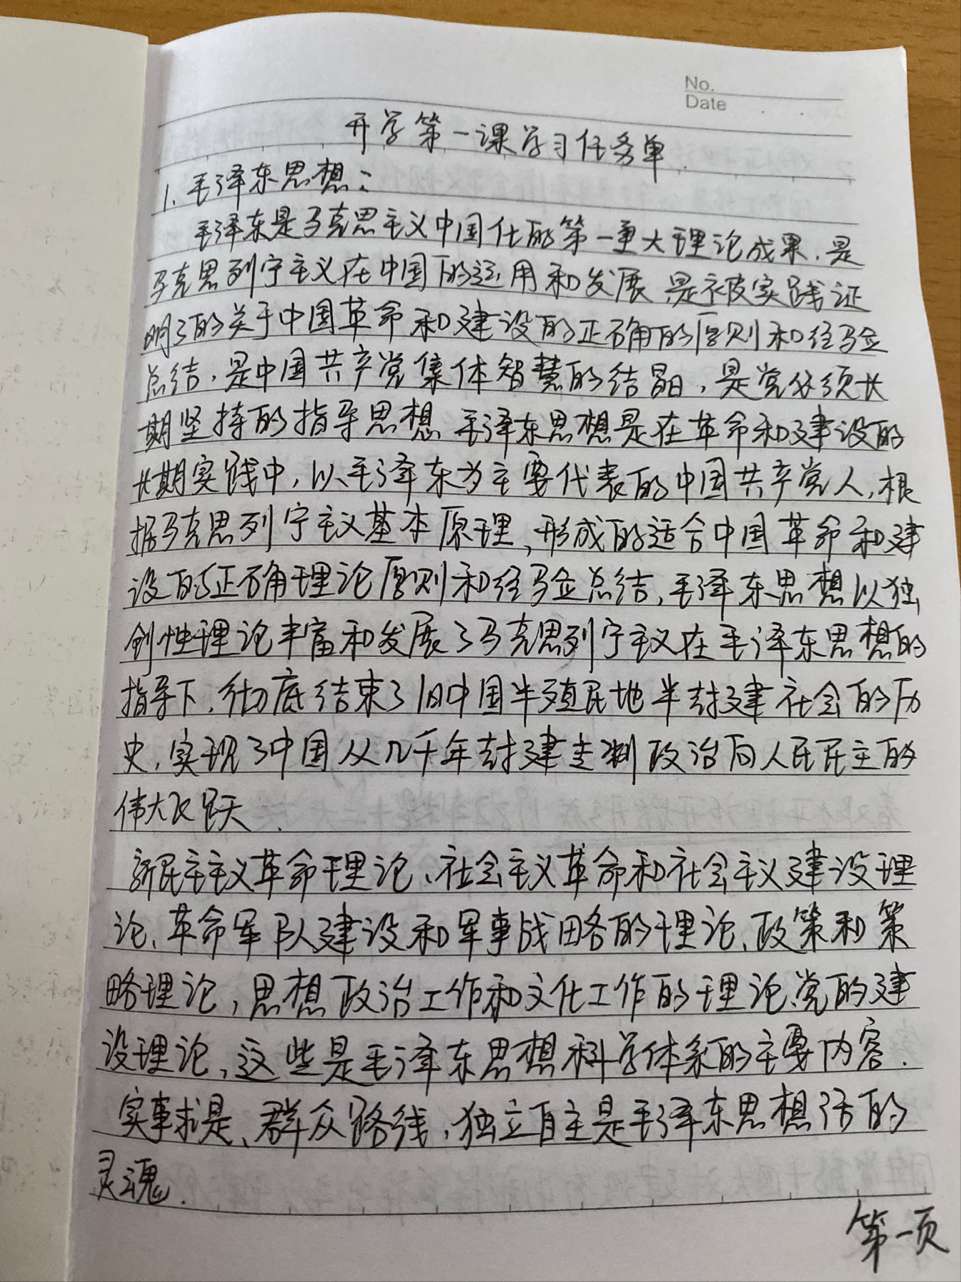 No.
Date
开学第一课学习任务单
1. 毛泽东思想：
毛泽东是马克思主义中国化的第一重大理论成果，是
马克思列宁主义在中国的运用和发展 是被实践证
明了的关于中国革命和建设的正确的原则和经验
总结，是中国共产党集体智慧的结晶，是党必须长
期坚持的指导思想 毛泽东思想是在革命和建设的
长期实践中，以毛泽东为主要代表的中国共产党人，根
据马克思列宁主义基本原理，形成的适合中国革命和建
设的正确理论原则和经验总结，毛泽东思想以独
创性理论丰富和发展了马克思列宁主义在毛泽东思想的
指导下，彻底结束了旧中国半殖民地半封建社会的历
史，实现了中国从几千年封建专制政治向人民民主的
伟大飞跃．
新民主主义革命理论、社会主义革命和社会主义建设理
论、革命军队建设和军事战略的理论、政策和策
略理论，思想政治工作和文化工作的理论、党的建
设理论，这些是毛泽东思想科学体系的主要内容．
实事求是、群众路线，独立自主是毛泽东思想活的
灵魂．
第一页